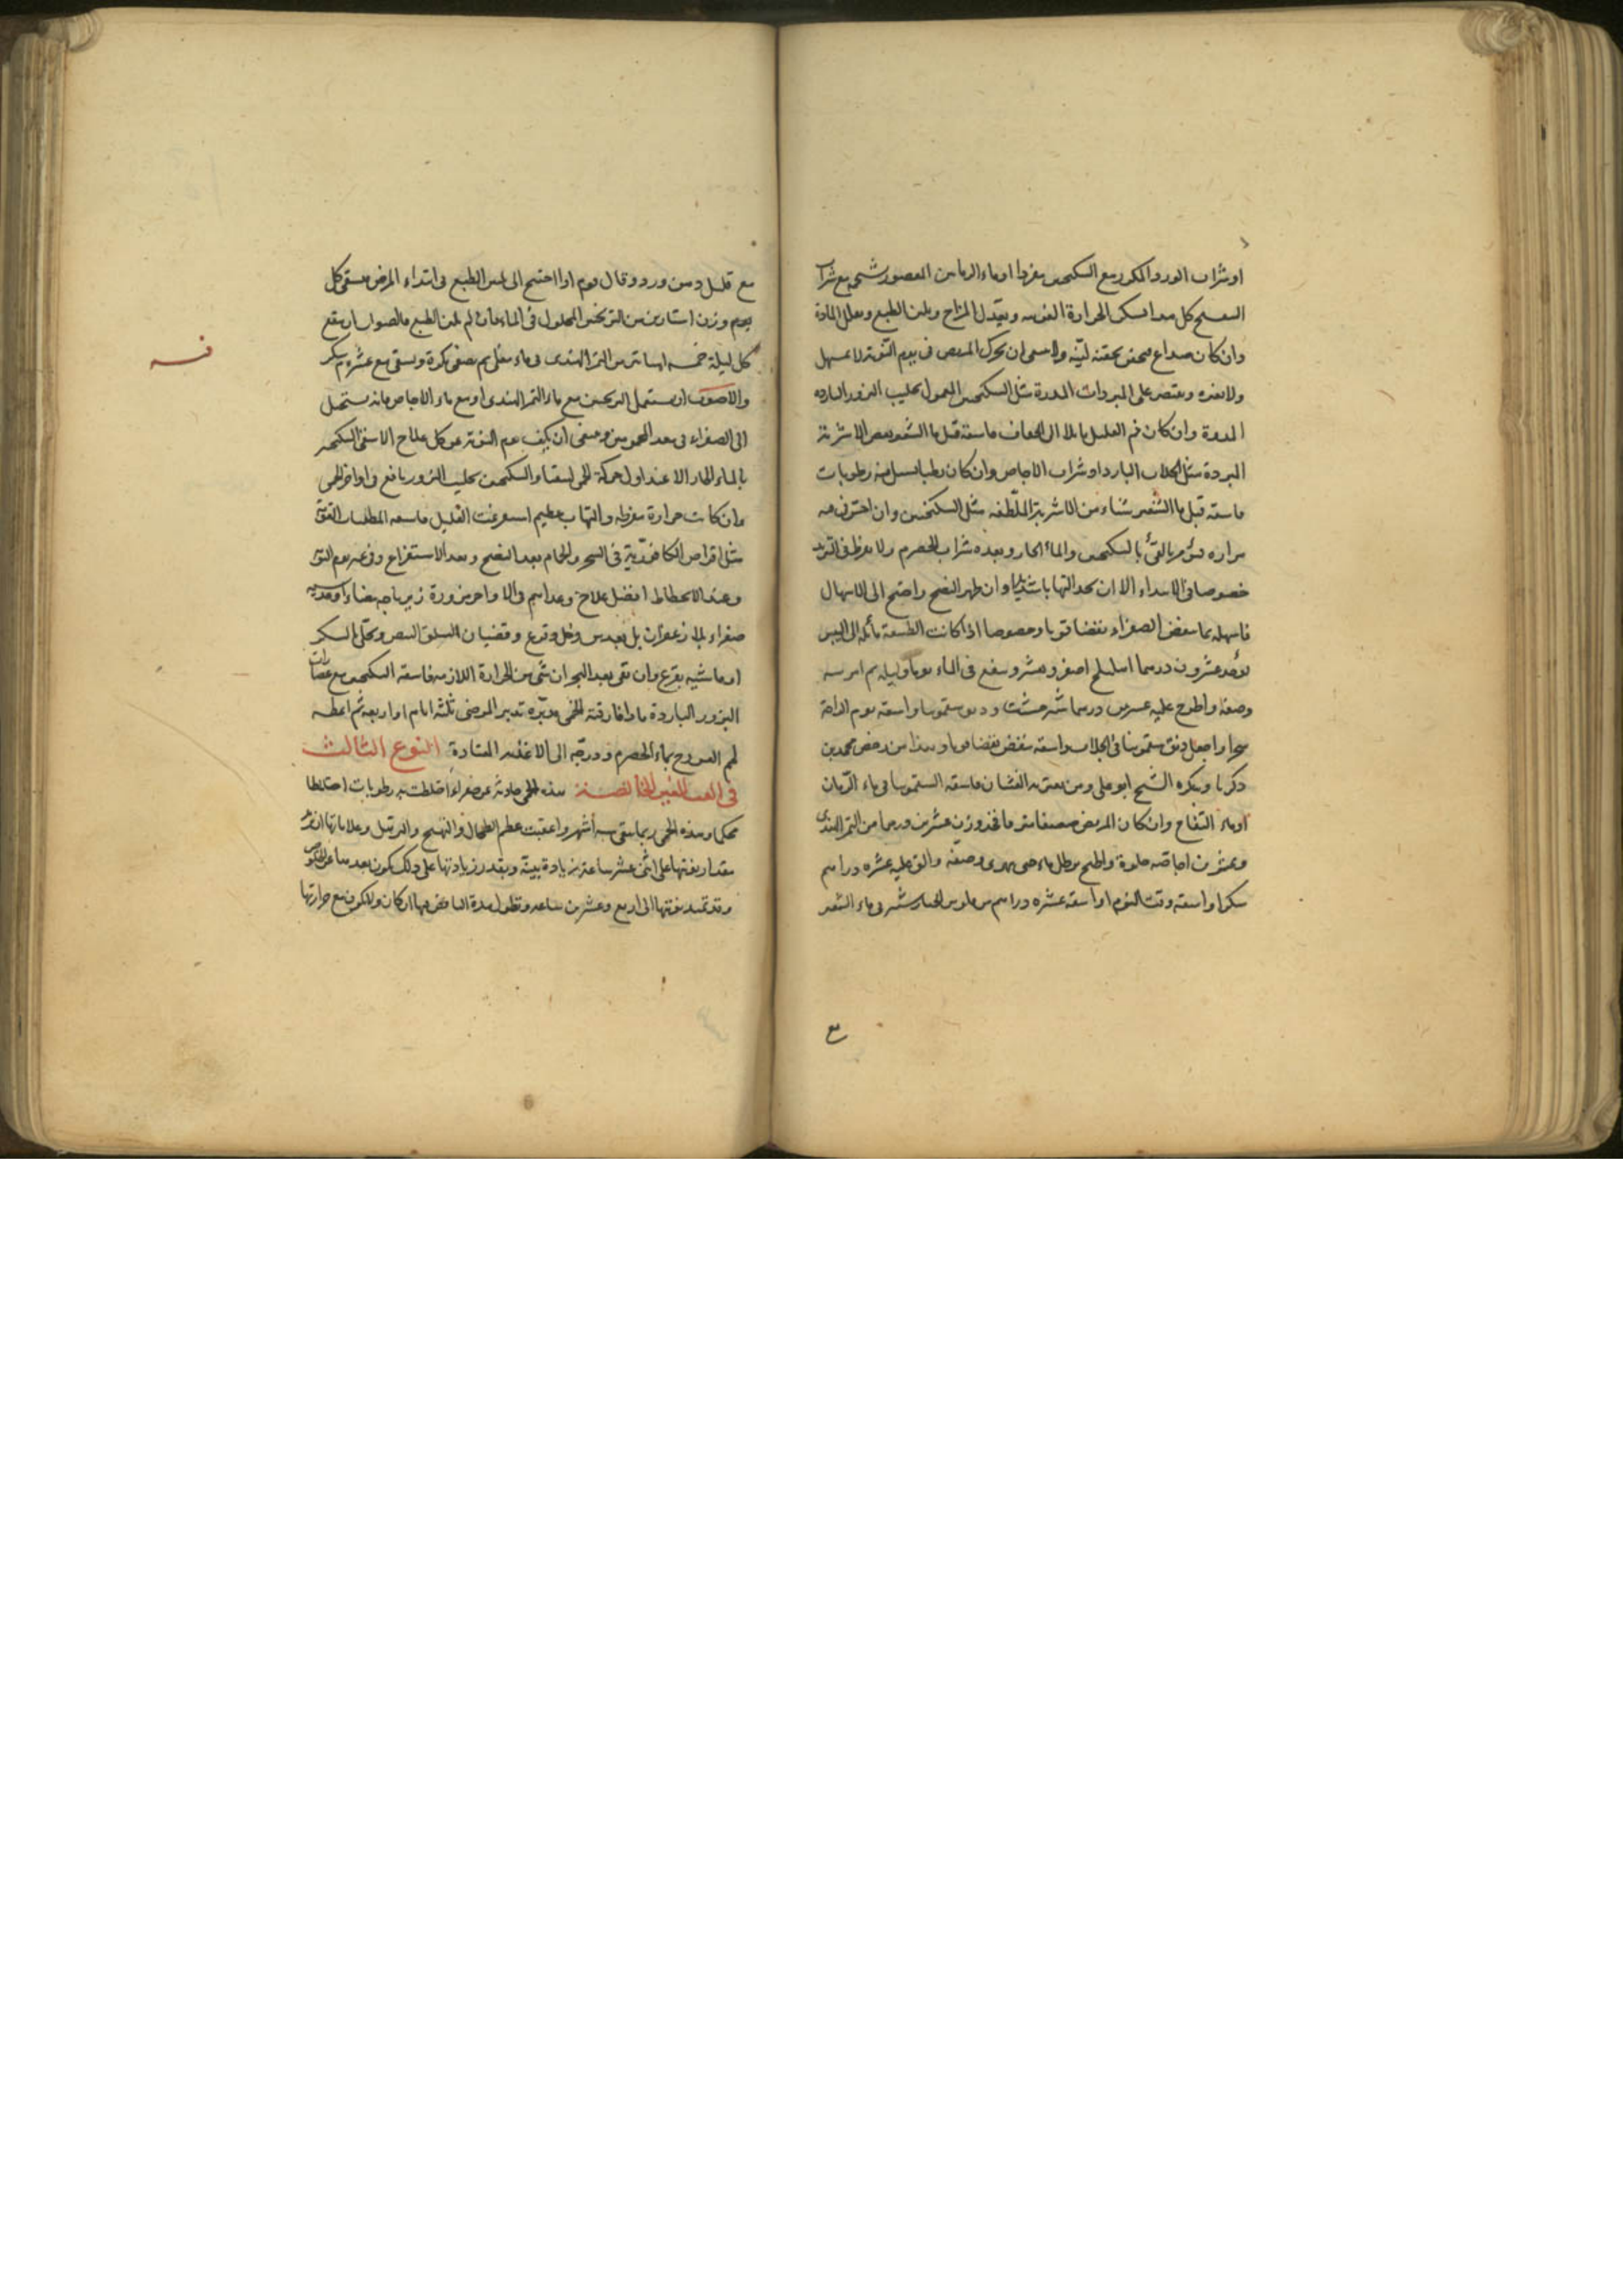 او شراب الورد المكرر مع السكنجبين مفردا او ماء الرمانين المعصور بشحمه مع شراب
البنفسج كل هذا يسكن الحرارة الغريبة ويعدل المزاج ويلين الطبع ويعلل المادة
وان كان صداع فيحقن بحقنة لينة ولا ينبغي ان يحرك المريض في يوم النوبة لا بمسهل
ولا بغيره ويقتصر على المبردات المدرة مثل السكنجبين المعمول بحليب البزور الباردة
المدرة وان كان فم العليل مائلا الى الجفاف فاسقه قبل ماء الشعير بعض الاشربة
المبردة مثل الجلاب البارد او شراب الاجاص وان كان رطبا يسيل منه رطوبات
فاسقه قبل ماء الشعير شيئا من الاشربة الملطفة مثل السكنجبين وان احترق فيه
مراره فيؤمر بالقئ بالسكنجبين والماء الحار وبعده شراب الحصرم ولا يفرط في التبريد
خصوصا في الابتداء الا ان يجد التهابا شديدا وان ظهر النضج واحتج الى الاسهال
فاسهله بما ينفض الصفراء نفضا قويا وخصوصا اذا كانت الطبيعة مائلة الى اليبس
يؤخذ عشرون درهما اهليلج اصفر ويقشر وينقع في الماء يوما وليلة ثم امرسه
وصفه واطرح عليه عشرين درهما شيرخشت ودانق سقمونيا واسقه يوم الراحة
سحرا واجعل دانق سقمونيا في الجلاب واسقه ينفض نفضا قويا وهذا من رخص محمد بن
زكريا ويكره الشيخ ابو علي ومن يعتريه الغشيان فاسقه السقمونيا في ماء الرمان
او ماء التفاح وان كان المريض ضعيفا فخذ وزن عشرين درهما من التمر الهندي
وعشرين اجاصة حلوة واطبخ برطل ماء حتى يهرى وصفه والق عليه عشرة دراهم
سكرا واسقه وقت النوم او اسقه عشرة دراهم من فلوس الخيار شنبر في ماء الشعير
مع
مع قليل دهن ورد وقال قوم اذا احتيج الى لين الطبع في ابتداء المرض يسقى كل
يوم وزن استارين من الترنجبين المحلول في الماء فان لم يلن الطبع فالصواب ان ينقع
كل ليلة خمسة اساتير من التمر الهندي في ماء مغلى ثم يصفى بكرة ويسقى مع عشرة سكر
والاصوب ان يستعمل الترنجبين مع ماء التمر الهندي او مع ماء الاجاص فانه يستحيل
الى الصفراء في معد المحمومين وينبغي ان يكف يوم النوبة عن كل علاج الا سقي السكنجبين
بالماء الحار الا عند اول حركة الحمى لسقياه والسكنجبين بحليب البزور نافع في اواخر الحمى
وان كانت حرارة مفرطة والتهاب عظيم استفرغت القليل فاسقه المطفئات القوية
مثل اقراص الكافورية في السحر والحمام بعد النضج وبعد الاستفراغ وفي غير يوم النوبة
وعند الانحطاط افضل علاج وغذاهم في الاواخر بمزورة زيرباجة بيضاء او عدسية
صفراء بلا زعفران بل بعدس وخل وقرع وقضبان السلق البيض ويحلى بالسكر
او ماشية بقرع وان بقى بعد البحران شئ من الحرارة اللازمة فاسقه السكنجبين مع عصارات
البزور الباردة فاذا فارقته الحمى دبره تدبير المرضى ثلثة ايام او اربعة ثم اعطه
لحم الفروج بماء الحصرم ودرجه الى الاغذية المعتادة النوع الثالث
في الغب الغير الخالصة هذه الحمى حادثة عن صفراء اختلطت به رطوبات اختلاطا
محكما وهذه الحمى ربما بقي ستة أشهر واعقبت عظم الطحال والتهيج والترهل وعلاماتها ان يزيد
مقدار نوبتها على اثنى عشر ساعة زيادة بينة وبقدر زيادتها على ذلك يكون بعدها عن الخلوص
وقد تمتد نوبتها الى اربع وعشرين ساعة وتطول مدة النافض فيها ان كان ولا يكون مع حرارتها